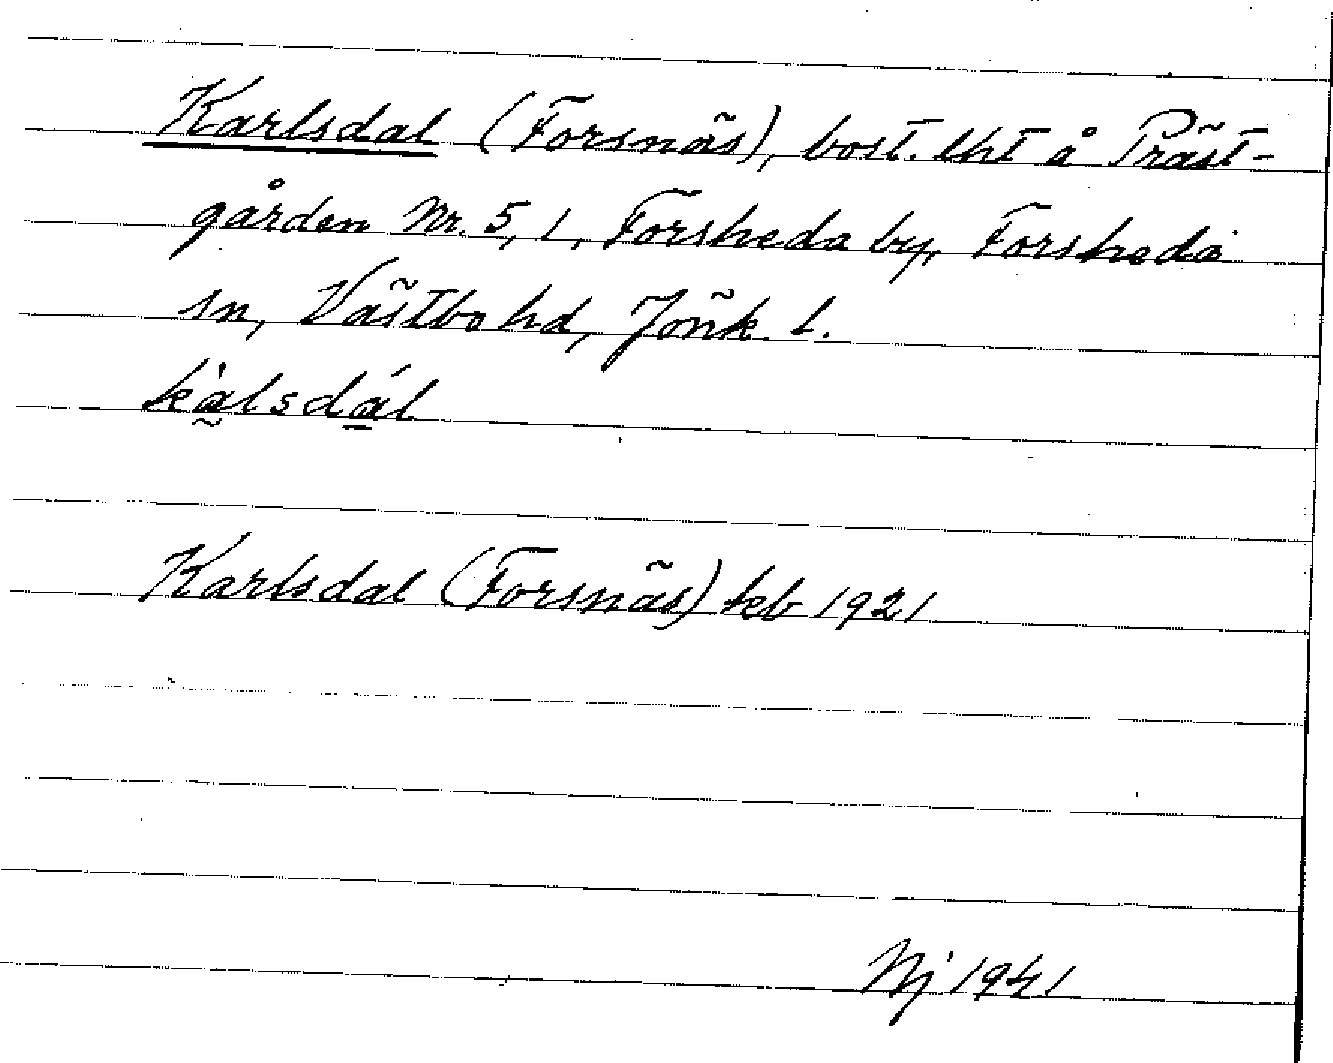 Karlsdal (Forsnäs), bost. lht å Präst-
gården Nr. 5, 1, Forsheda by, Forsheda
sn, Västbo hd, Jönk. l.
kàlsdál
Karlsdal (Forsnäs) kb 1921
Nj 1941